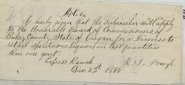 Notice
is hereby given that the subscriber will apply
to the Honorable Board of Commissioners of
Baker County State of Oregon for a License to
retail spirituous liquors in less quantities
than one quart.
Express Ranch
Dec 25th 1865